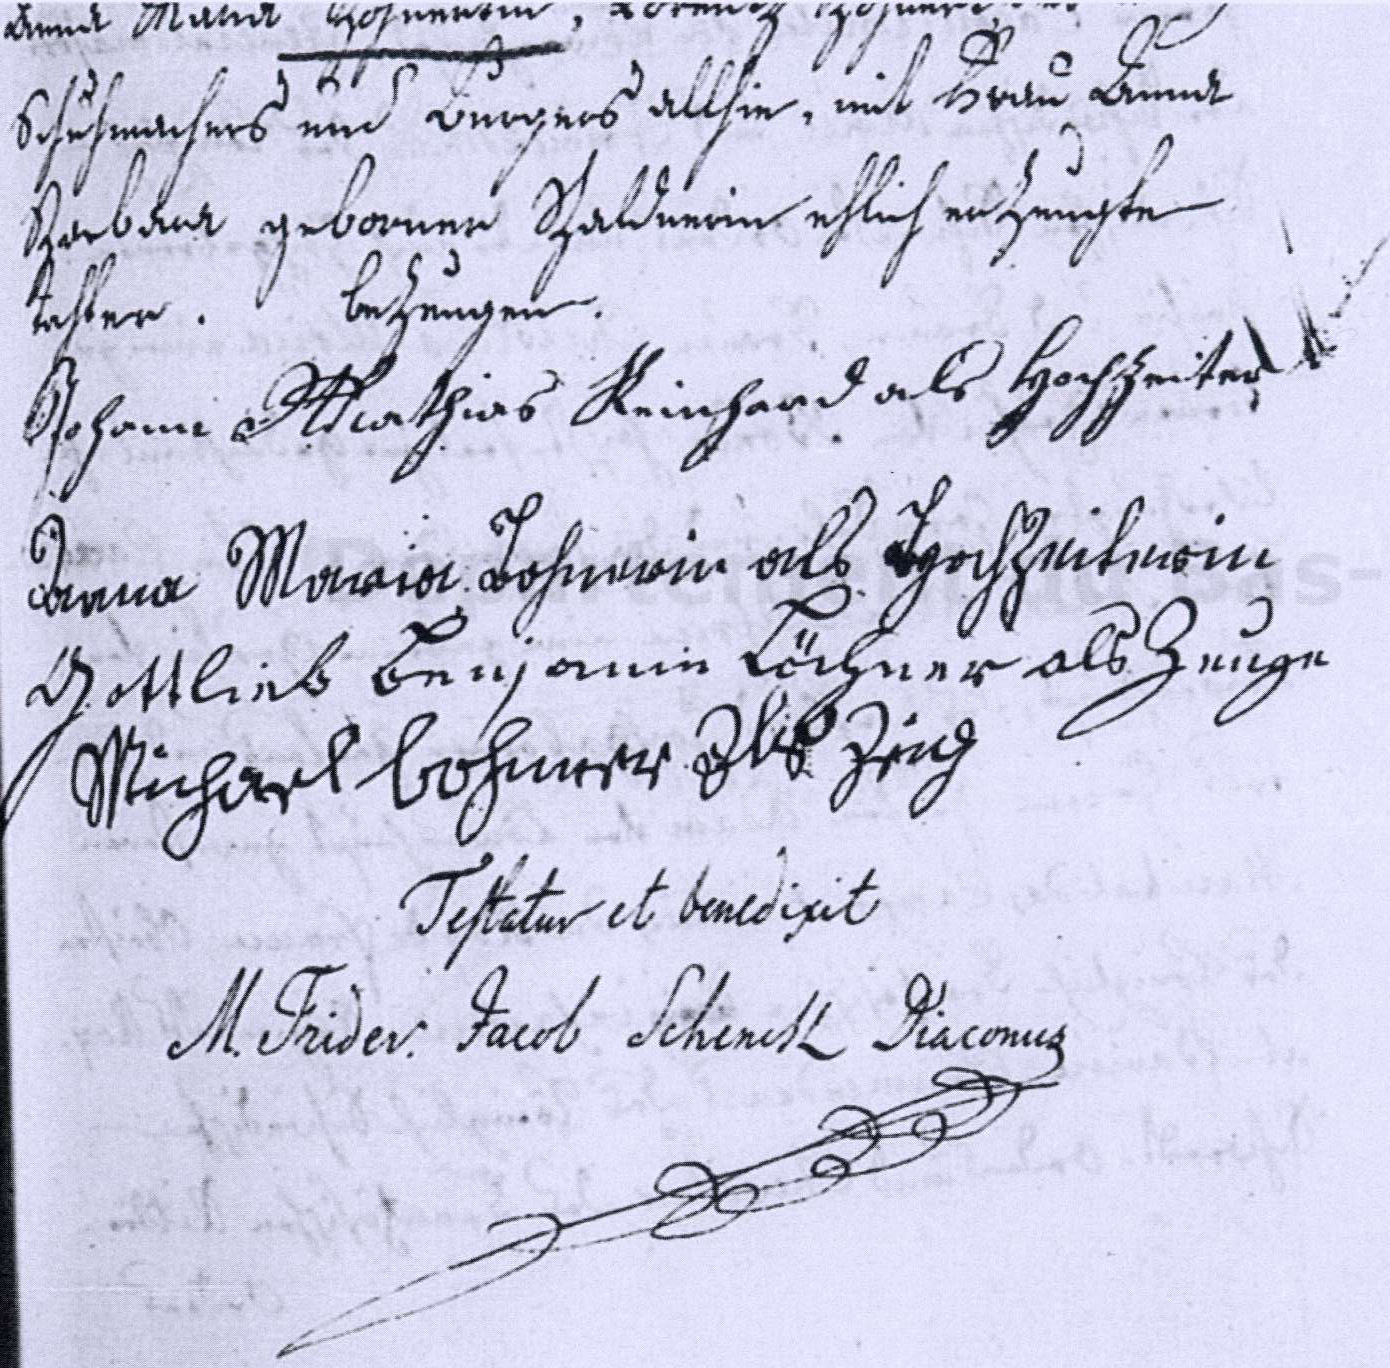 Anna Maria Lohnerin, Lorentz Lohners
Schuhmachers und Burgers allhie, mit Frau Anna
Barbara geborner Baldnerin ehlich erzeugte
Tochter. bezeugen.
Johann Mathias Reinhard als Hochzeiter
Anna Maria Lohnerin als Hochzeiterin
Gottlieb Benjamin Löchner als Zeuge
Michael Lohner Als Zeug
Testatur et benedixit
M. Frider. Jacob Schenck Diaconus